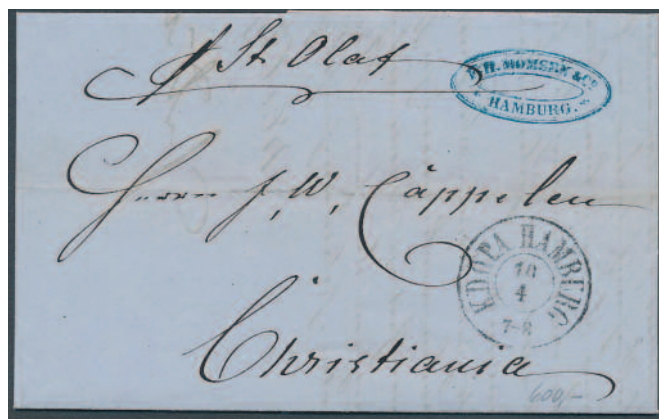 St. Olaf
MOMSEN & Co
HAMBURG.
Herrn J. W. Cäppelen
KDOPA HAMBURG
10
4
7-8
Christiania
600,-